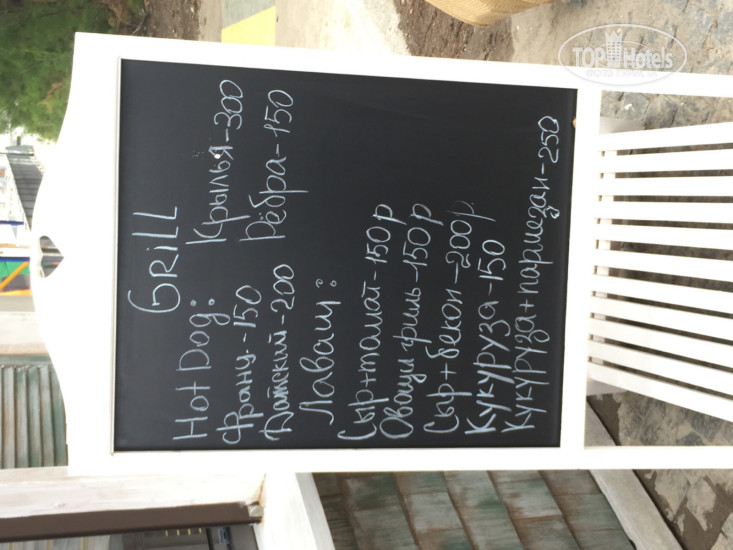 GRiLL
Hot Dog:
Франц.-150
Датский-200
Крылья-300
Рёбра-150
Лаваш:
Сыр+томат-150р
Овощи гриль-150р
Сыр+бекон-200р
Кукуруза-150
Кукуруза+пармезан-250
TOP Hotels